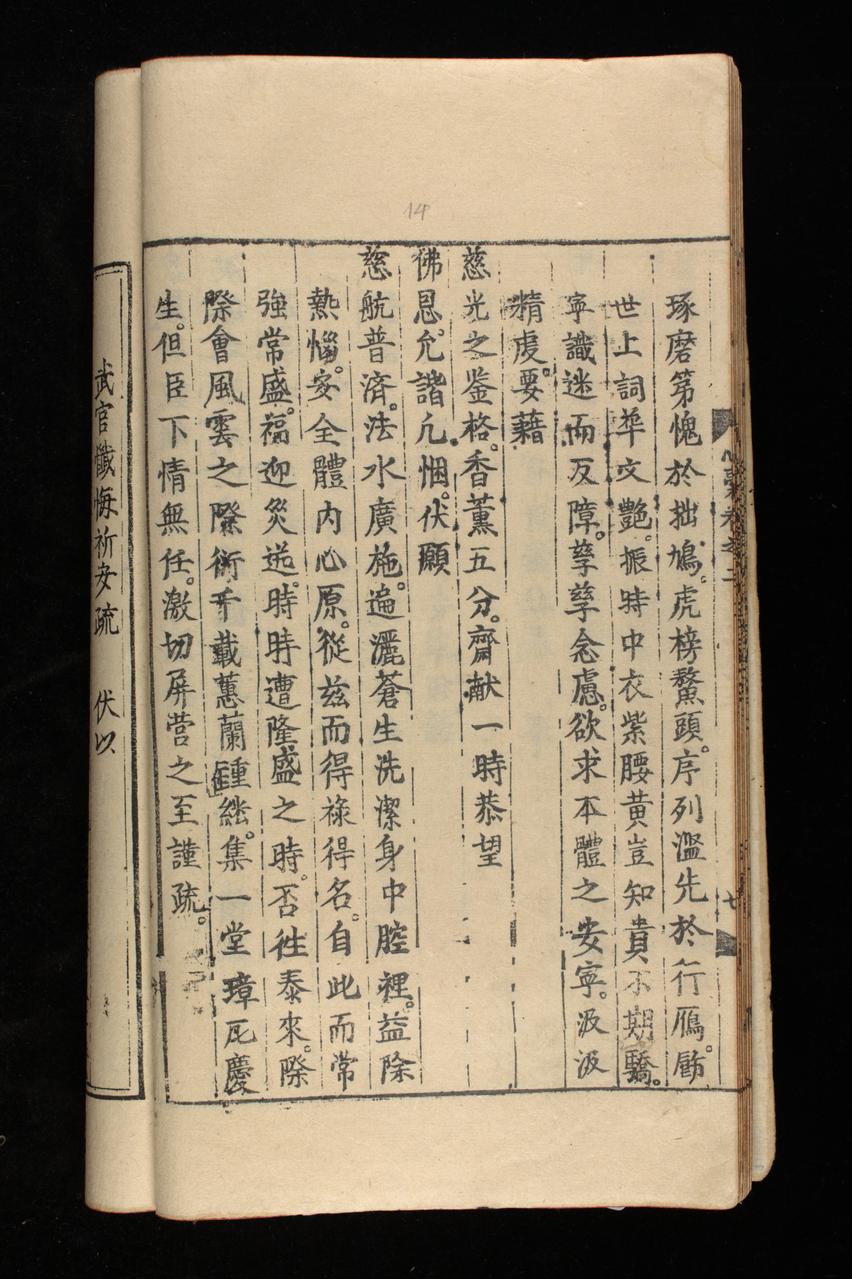 14
卷之二
七
琢磨第愧於拙鳩。虎榜鰲頭。序列濫先於行鴈。
世上詞華文艷。振時中衣紫腰黃豈知貴不期驕。
寧識迷而反障。孳孳念慮。欲求本體之安寧。汲汲
精虔。要藉
慈光之鉴格。香薰五分。齋献一時恭望
佛恩。允諧凢悃。伏願
慈航普済。法水廣施。遍灑蒼生洗潔身中腔裡。益除
熱惱。安全體内心原。從兹而得禄得名。自此而常
強常盛。福迎災逆。時時遭隆盛之時。否徃泰來。際
際會風雲之際衍千載蕙蘭集一堂璋瓦慶
生。但臣下情無任。激切屏营之至謹疏。
武官懺悔祈安疏 伏以